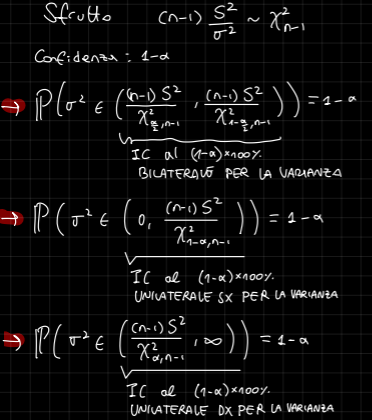 Sfrutto (n-1) S²/σ² ~ χ²ₙ₋₁
Confidenza: 1-α
→ ℙ(σ² ∈ ((n-1) S²/χ²_{α/2,n-1} , (n-1) S²/χ²_{1-α/2,n-1})) = 1-α
IC al (1-α)×100%
BILATERALE PER LA VARIANZA
→ ℙ(σ² ∈ (0, (n-1) S²/χ²_{1-α,n-1})) = 1-α
IC al (1-α)×100%.
UNILATERALE SX PER LA VARIANZA
→ ℙ(σ² ∈ ((n-1) S²/χ²_{α,n-1} , ∞)) = 1-α
IC al (1-α)×100%.
UNILATERALE DX PER LA VARIANZA